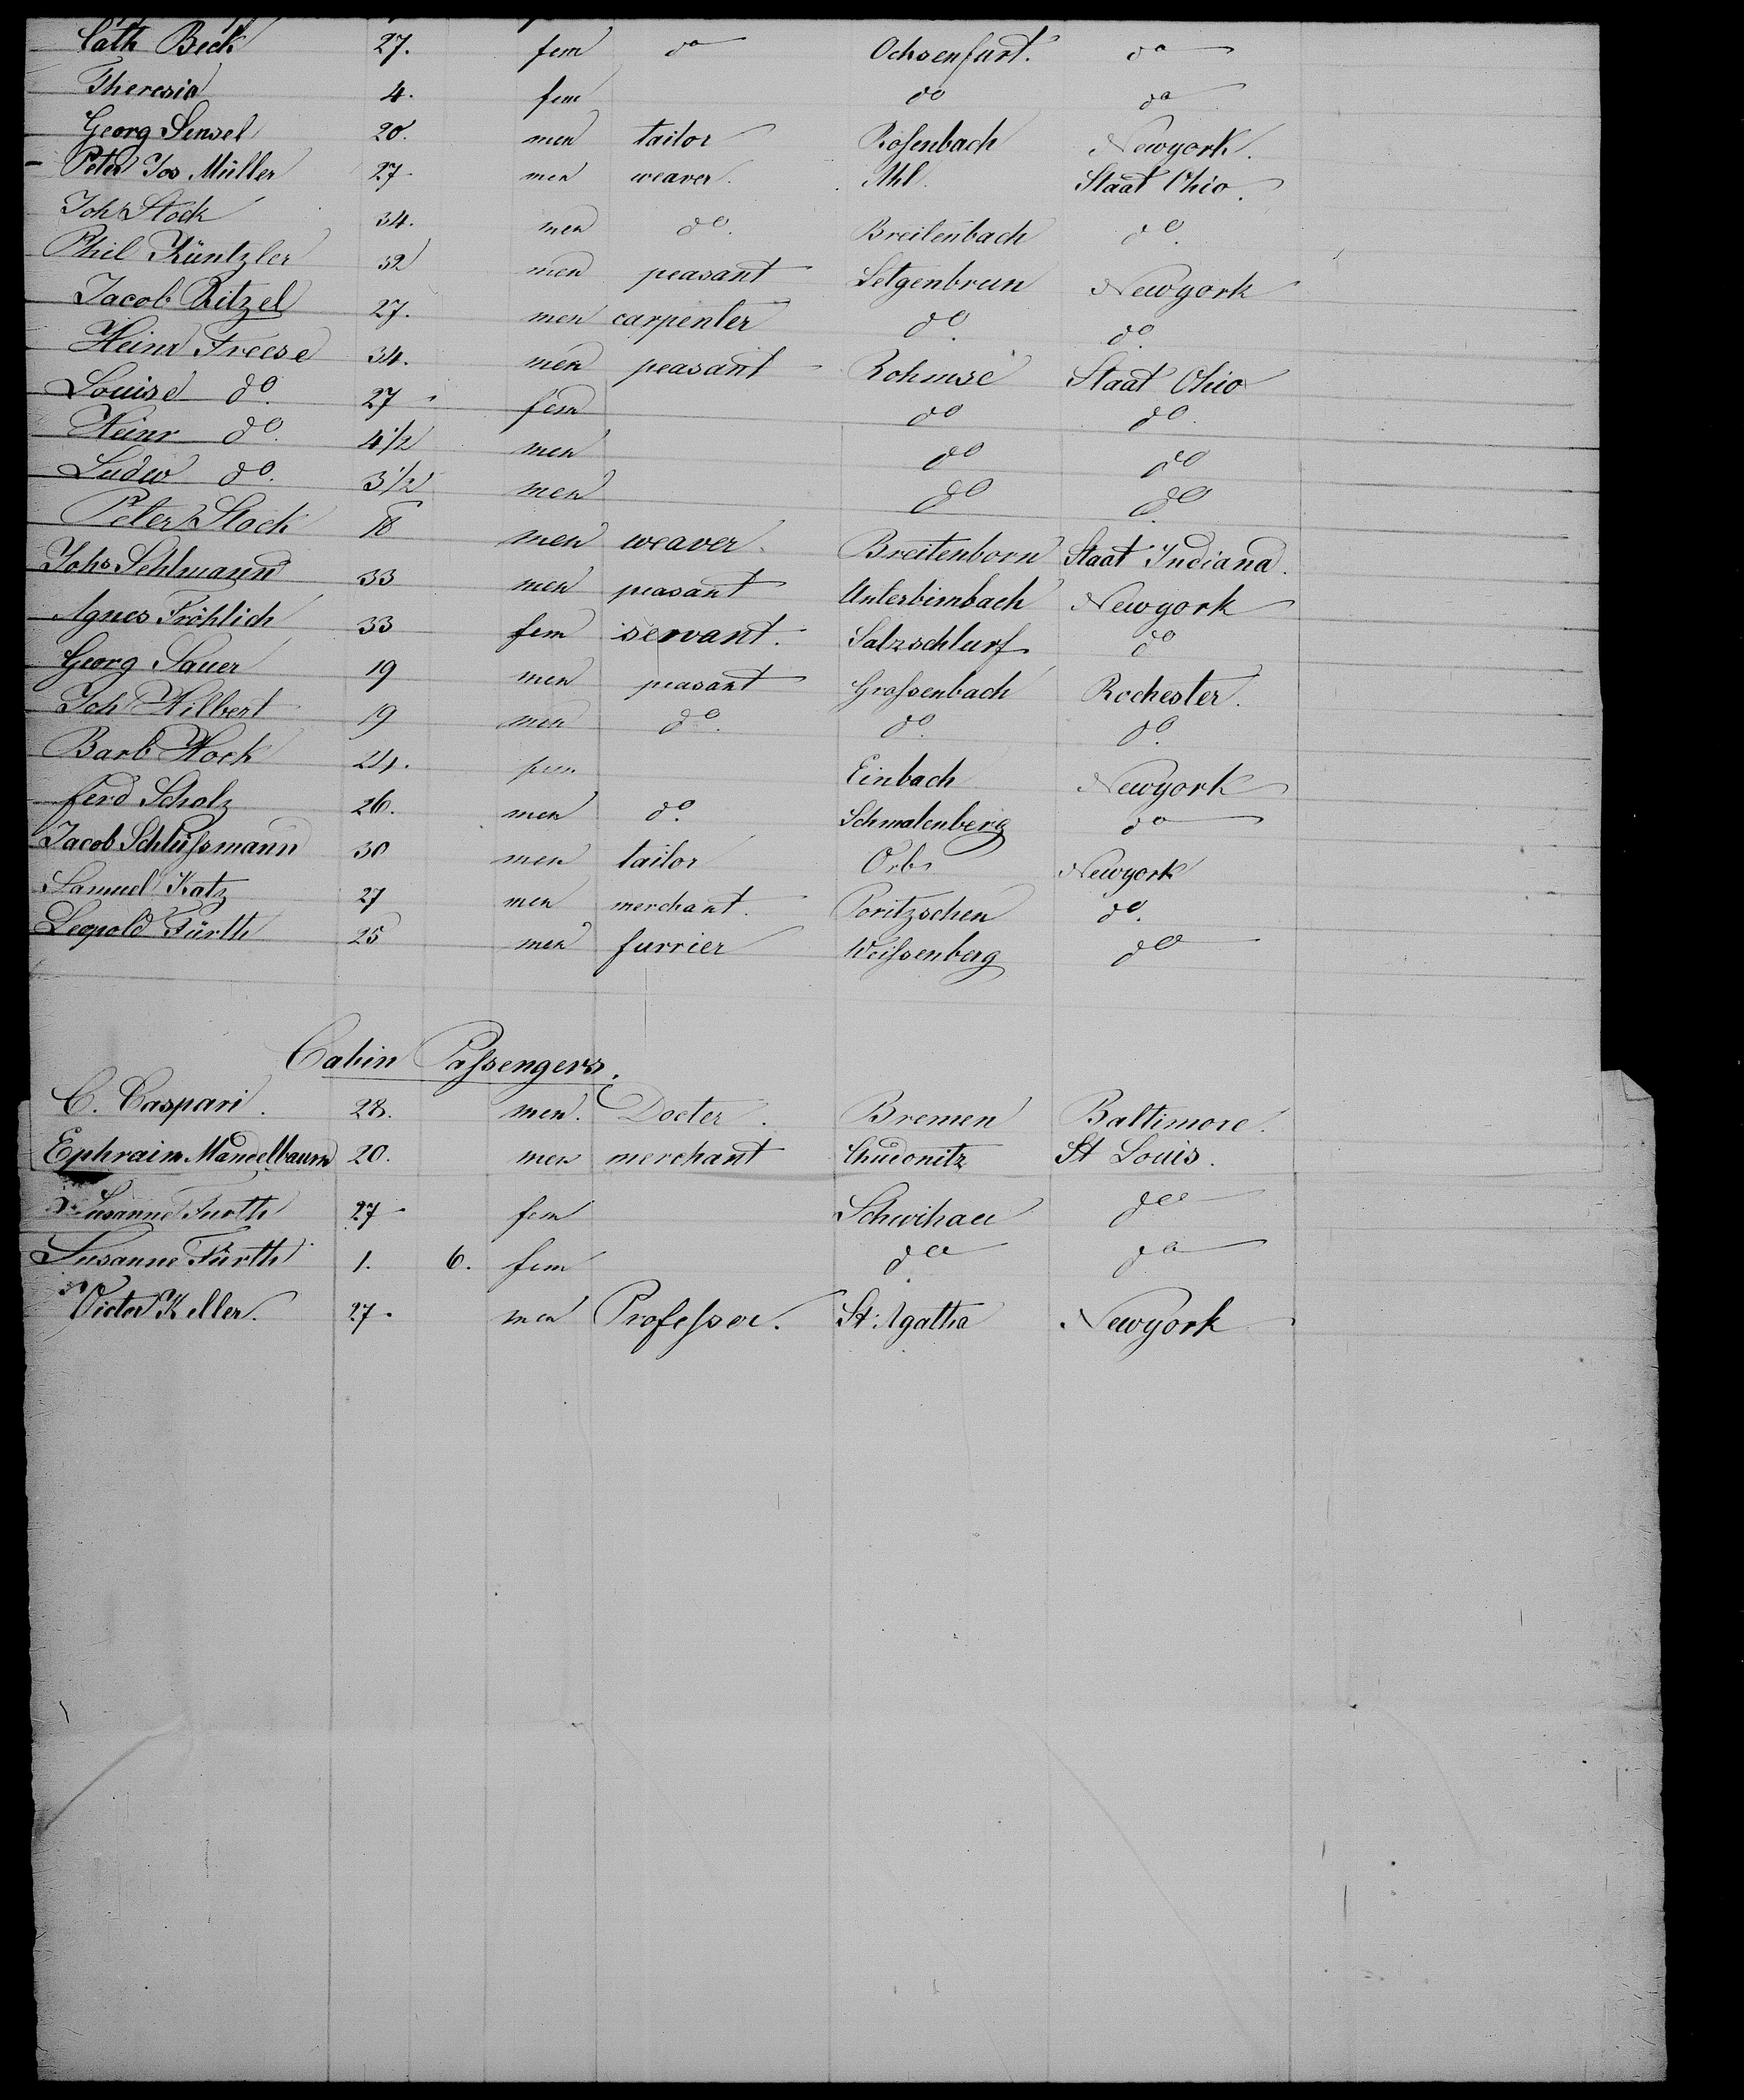 Cath Beck 27. fem do Ochsenfurt. do
Theresia 4. fem do do
Georg Sensel 20. men tailor Roßenbach Newyork.
Peter Jos Müller 27 men weaver. Ahl. Staat Ohio.
Joh Stock 34. men do. Breitenbach do.
Phil Küntzler 32 men peasant Setgenbrun Newyork
Jacob Ritzel 27. men carpenter do. do.
Heinr Freese 34. men peasant Staat Ohio
Louise do. 27 fem do do.
Heinr do. 4 1/2 men do do
Ludw do. 3 1/2 men do do
Peter Stock 18 men weaver. Breitenborn Staat Indiana.
Johs Sehlmann 33 men peasant Unterbimbach Newyork
Agnes Fröhlich 33 fem servant. Salzschlurf do
Georg Sauer 19 men peasant Großenbach Rochester.
Joh Hilbert 19 men do. do. do.
Barb Hock 24. fem Einbach Newyork
Ferd Scholz 26. men do. Schmalenberg do
Jacob Schlüßmann 30 men tailor Orb Newyork
Samuel Katz 27 men merchant. Poritzschen do.
Leopold Fürth 25 men furrier Weißenberg do
Cabin Paßengers.
C. Caspari. 28. men. Docter. Bremen Baltimore.
Ephraim Mandelbaum 20. men merchant Chudonitz St Louis.
Susanne Furth 27 fem Schwihau do
Susanne Fürth 1. 6. fem do do
Victor Keller. 27. men Profeßor. St. Agatha Newyork